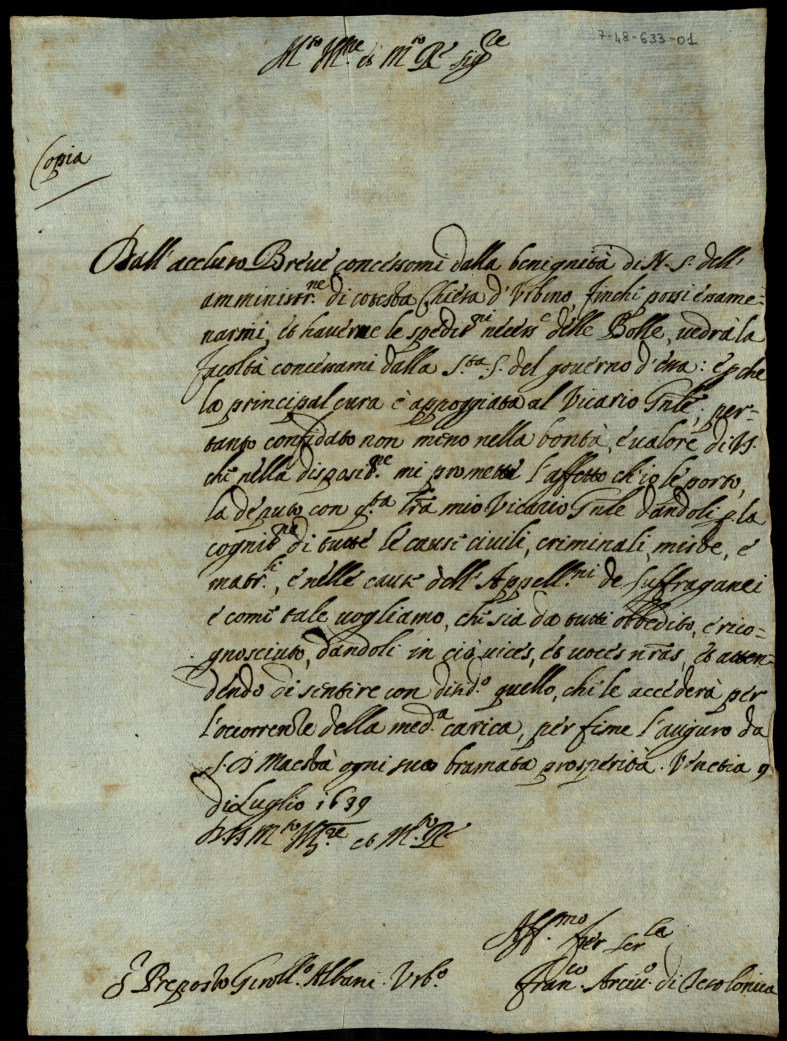 7-48-633-01
M.to Ill.re et M.to R.do Sig.re
Copia
Dall'accluso Breve concessomi dalla benignità di N. S. dell'
amministr.ne di cotesta Chiesa d'Urbino, finchi possi esame=
narmi, et haverne le spedit.ni necess.e delle Bolle, vedrà la
facoltà concessami dalla S.ta S. del governo d'essa: e p che
la principal cura è appoggiata al Vicario Gnle, per=
tanto confidato non meno nella bontà, e valore di VS.
che nella disposit.ne mi promette l'affetto ch'io le porto,
la deputo con q.ta lra mio Vicario Gnle dandoli p la
cognit.ne di tutte le cause civili, criminali miste, e
matr.li, e nelle cause dell'Appell.ni de suffraganei
e come tale vogliamo, che sia da tutti obbedito, e rico=
gnosciuto, dandoli in ciò vices, et voces nras, et atten=
dendo di sentire con quello, chi le accederà per
l'occorrente della med.a carica, per fine l'auguro da
S. D. Maestà ogni suo bramata prosperità. Venetia 9
di Luglio 1639
Di VS M.to Ill.re et M.to R.da
Aff.mo per ser.la
S. Preposto Giroll.o Albani. Urb.o
Fran.co Arciv.o di Tesolonica